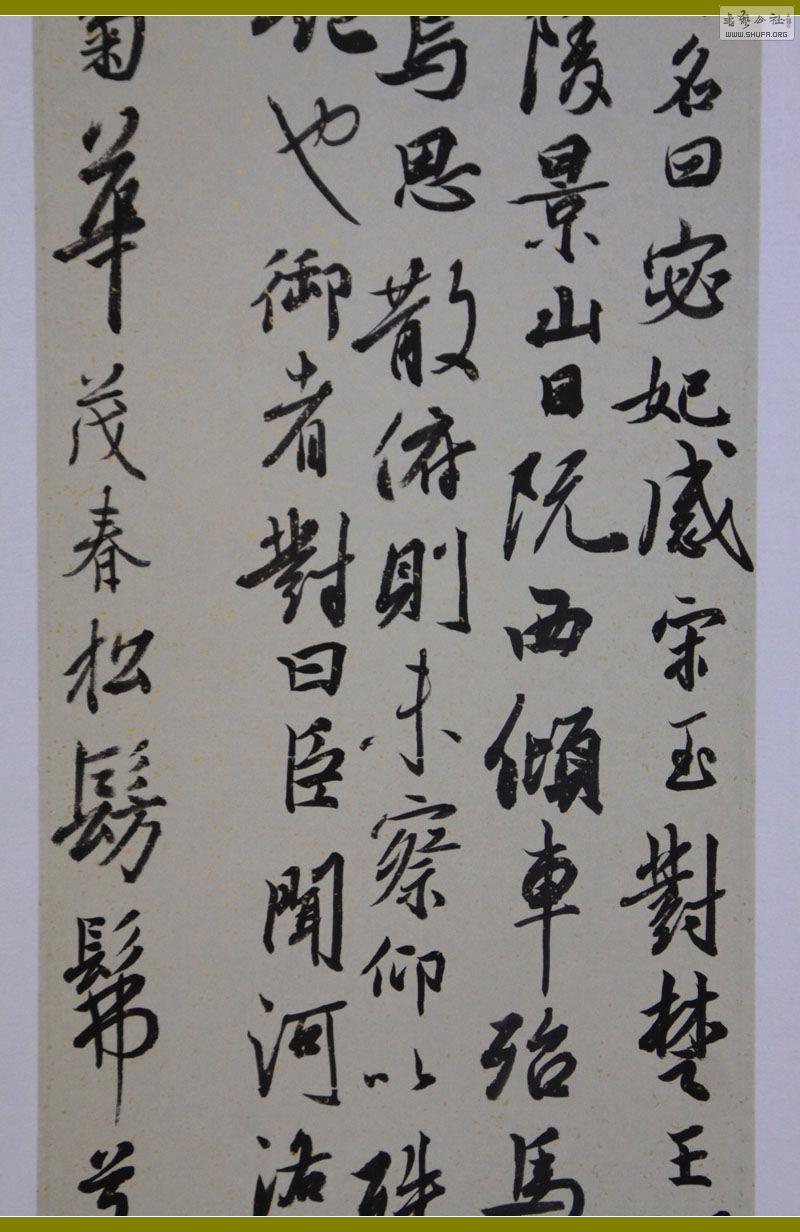 名曰宓妃感宋玉對楚王
陵景山日既西傾車殆馬
焉思散俯則未察仰以殊
也御者對曰臣聞河洛
菊華茂春松髣髴兮
書藝公社
WWW.SHUFA.ORG